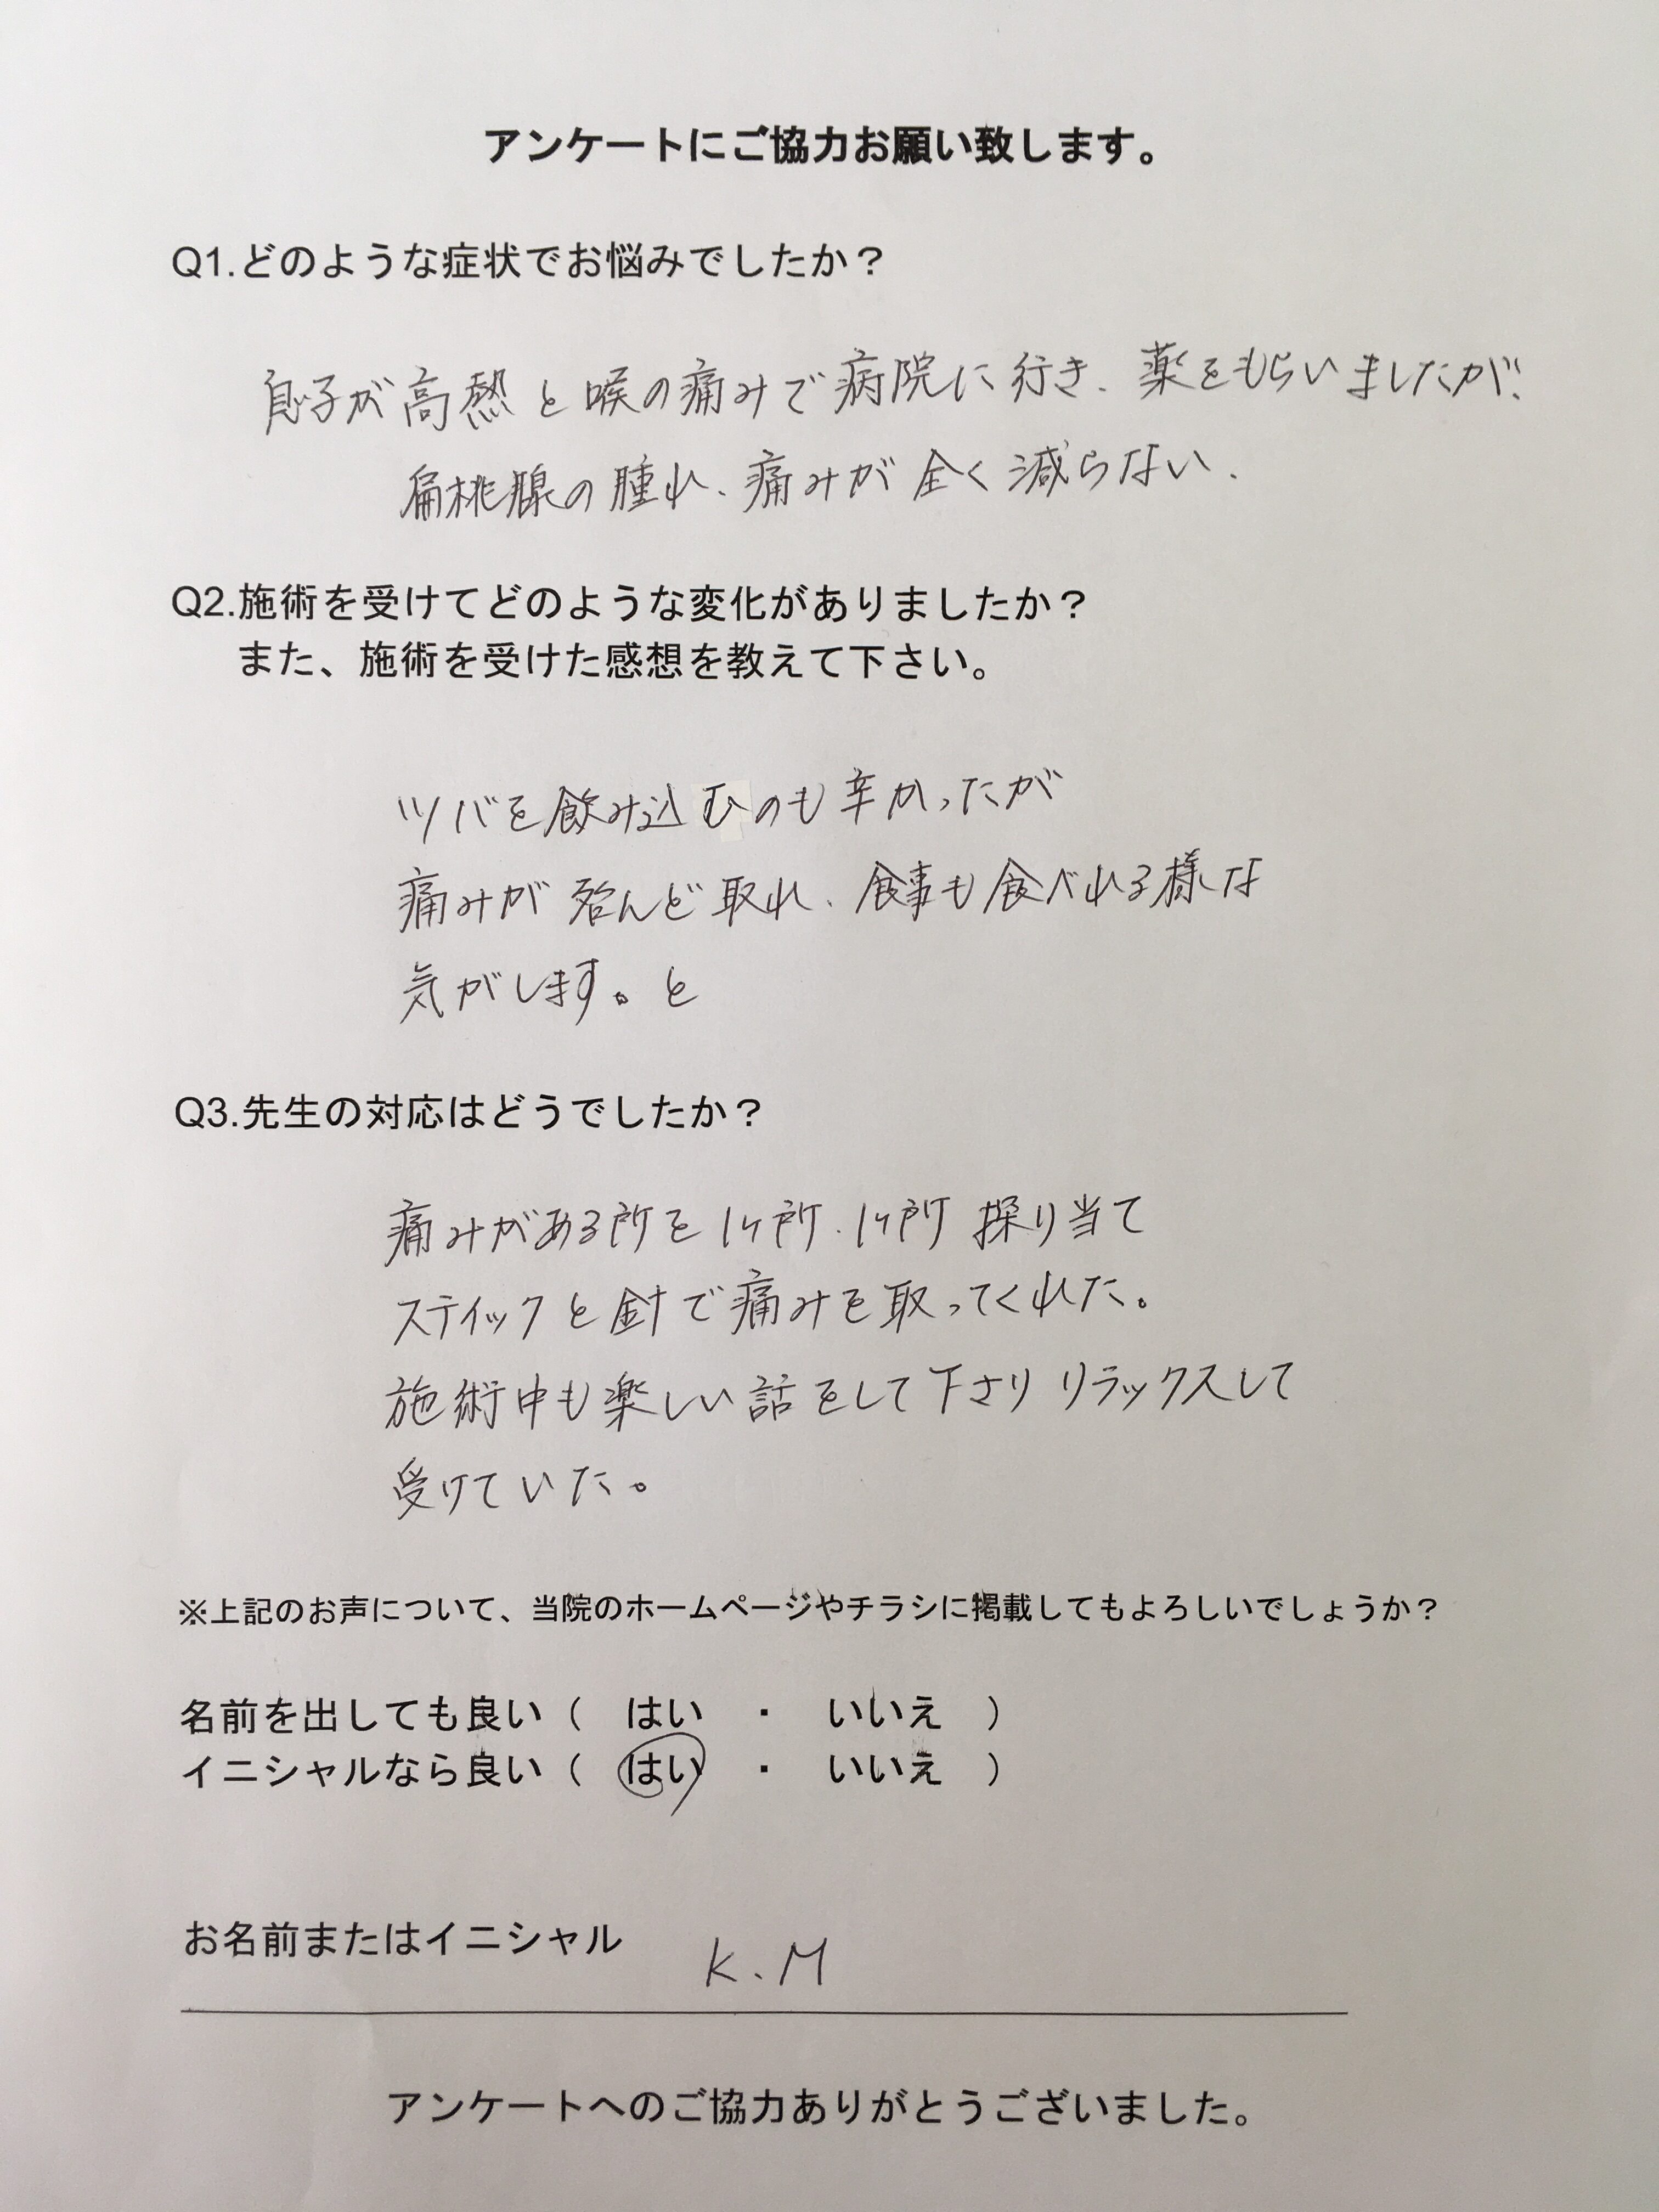 アンケートにご協力お願い致します。
Q1.どのような症状でお悩みでしたか？
息子が高熱と喉の痛みで病院に行き、薬をもらいましたが、
扁桃腺の腫れ、痛みが全く減らない、
Q2.施術を受けてどのような変化がありましたか？
また、施術を受けた感想を教えて下さい。
ツバを飲み込むのも辛かったが
痛みが殆んど取れ、食事も食べれる様な
気がします。と
Q3.先生の対応はどうでしたか？
痛みがある所を1ヶ所、1ヶ所探り当て
スティックと針で痛みを取ってくれた。
施術中も楽しい話をして下さりリラックスして
受けていた。
※上記のお声について、当院のホームページやチラシに掲載してもよろしいでしょうか？
名前を出しても良い（　はい　・　いいえ　）
イニシャルなら良い（　はい　・　いいえ　）
お名前またはイニシャル　K.M
アンケートへのご協力ありがとうございました。